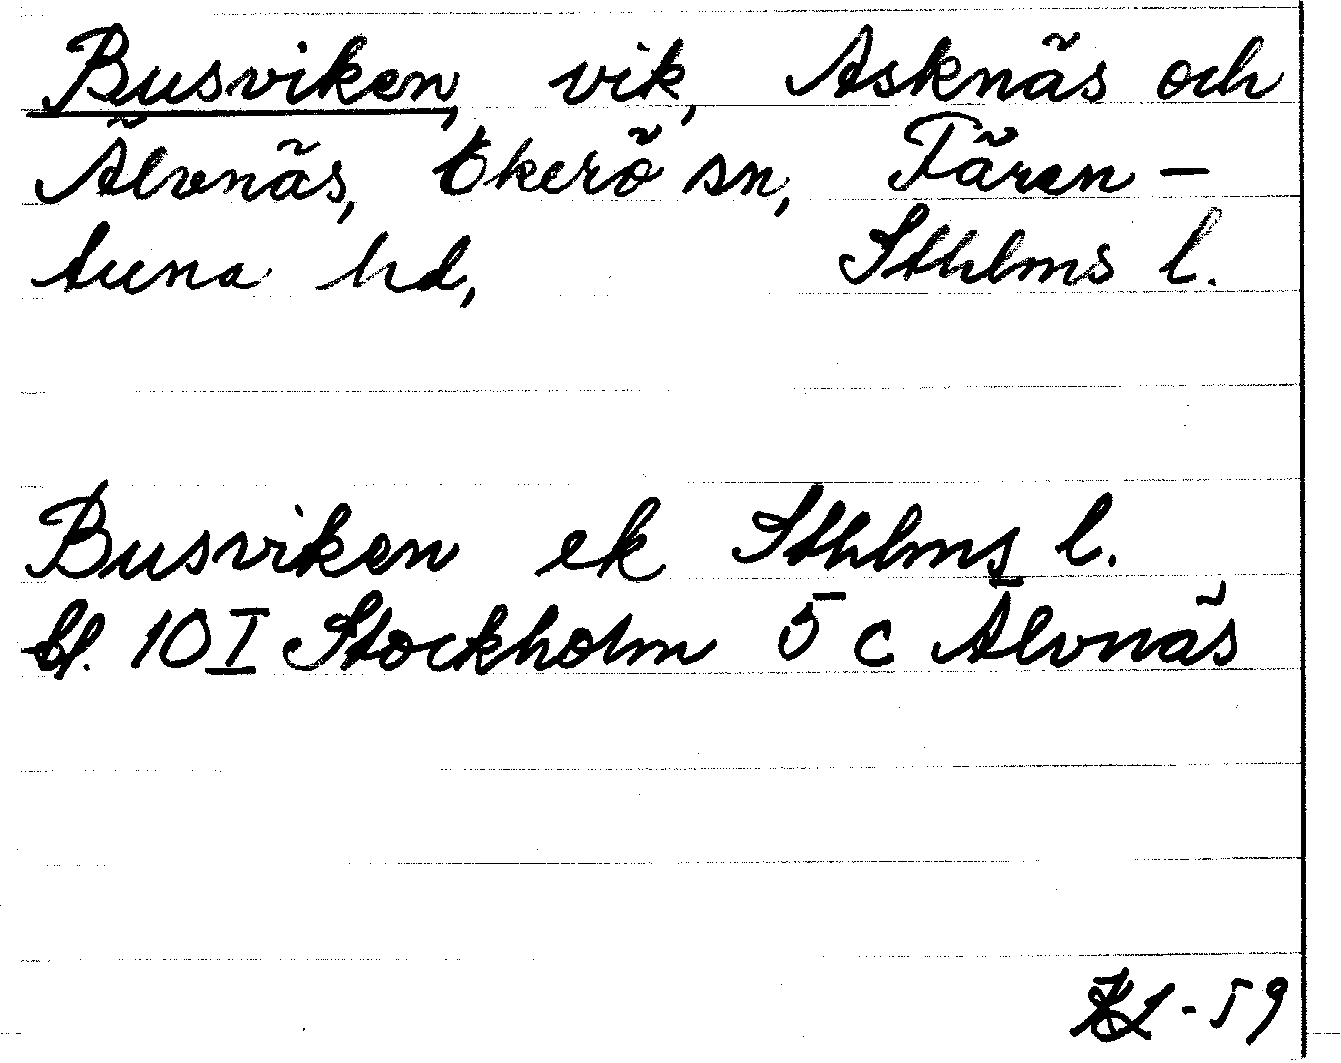 Busviken, vik, Asknäs och
Älvnäs, Ekerö sn, Fären-
tuna hd, Sthlms l.
Busviken ek Sthlms l.
bl. 10 I Stockholm 5 c Älvnäs
-59